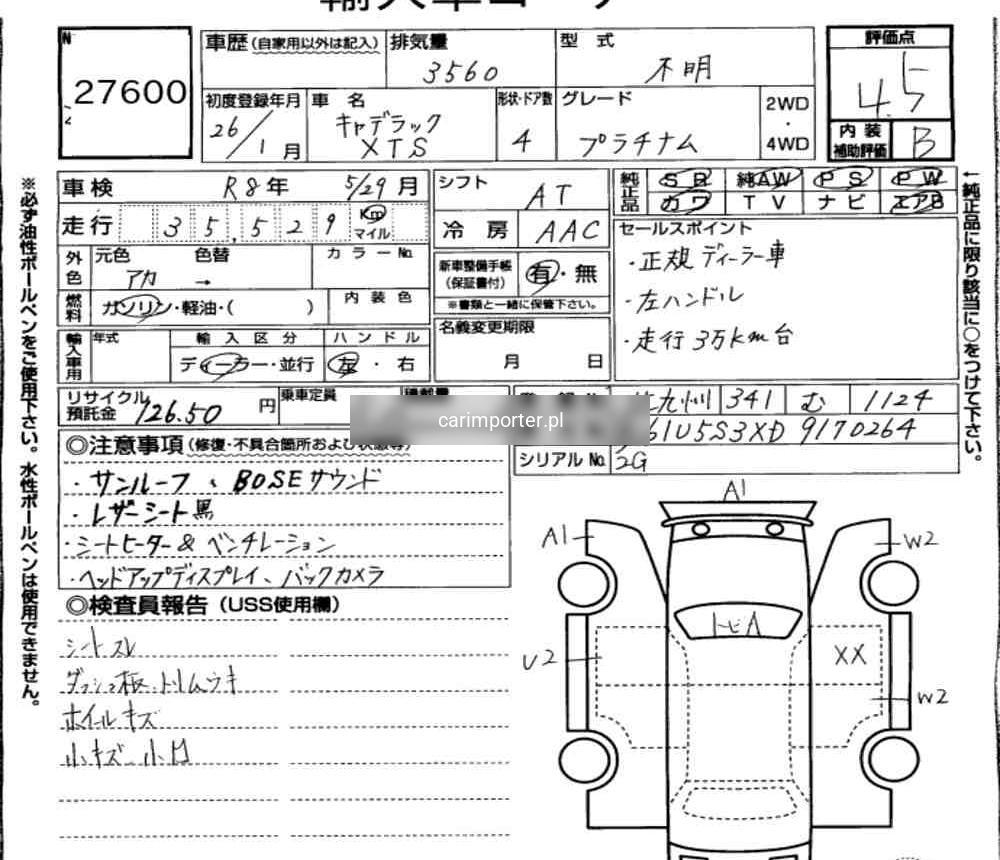 輸入車コーナー
27600
車歴(自家用以外は記入) 排気量 3560 型式 不明
評価点 4.5
初度登録年月 26/1月 車名 キャデラック XTS 形状・ドア数 4 グレード プラチナム 2WD・4WD
内装補助評価 B
車検 R8年 5/29月 シフト AT
純正品 SR 純AW PS PW
カワ TV ナビ エアB
走行 35,529 Km マイル 冷房 AAC
セールスポイント
・正規ディーラー車
・左ハンドル
・走行3万km台
外色 元色 アカ 色替 → カラーNo.
新車整備手帳(保証書付) 有・無
※書類と一緒に保管下さい。
燃料 ガソリン・軽油・( ) 内装色
名義変更期限 月 日
輸入車用 年式 輸入区分 ディーラー・並行 ハンドル 左・右
リサイクル預託金 126.50 円 乗車定員
北九州 341 む 1124
61U5S3XD9170264
シリアルNo. 2G
carimporter.pl
◎注意事項(修復・不具合箇所および状態等)
・サンルーフ、BOSEサウンド
・レザーシート黒
・シートヒーター&ベンチレーション
・ヘッドアップディスプレイ、バックカメラ
◎検査員報告(USS使用欄)
シートスレ
ダッシュ板、トリムウキ
ホイールキズ
小キズ、小凹
A1
A1
W2
トビA
U2
XX
W2
※必ず油性ボールペンをご使用下さい。水性ボールペンは使用できません。
↑純正品に限り該当に○をつけて下さい。